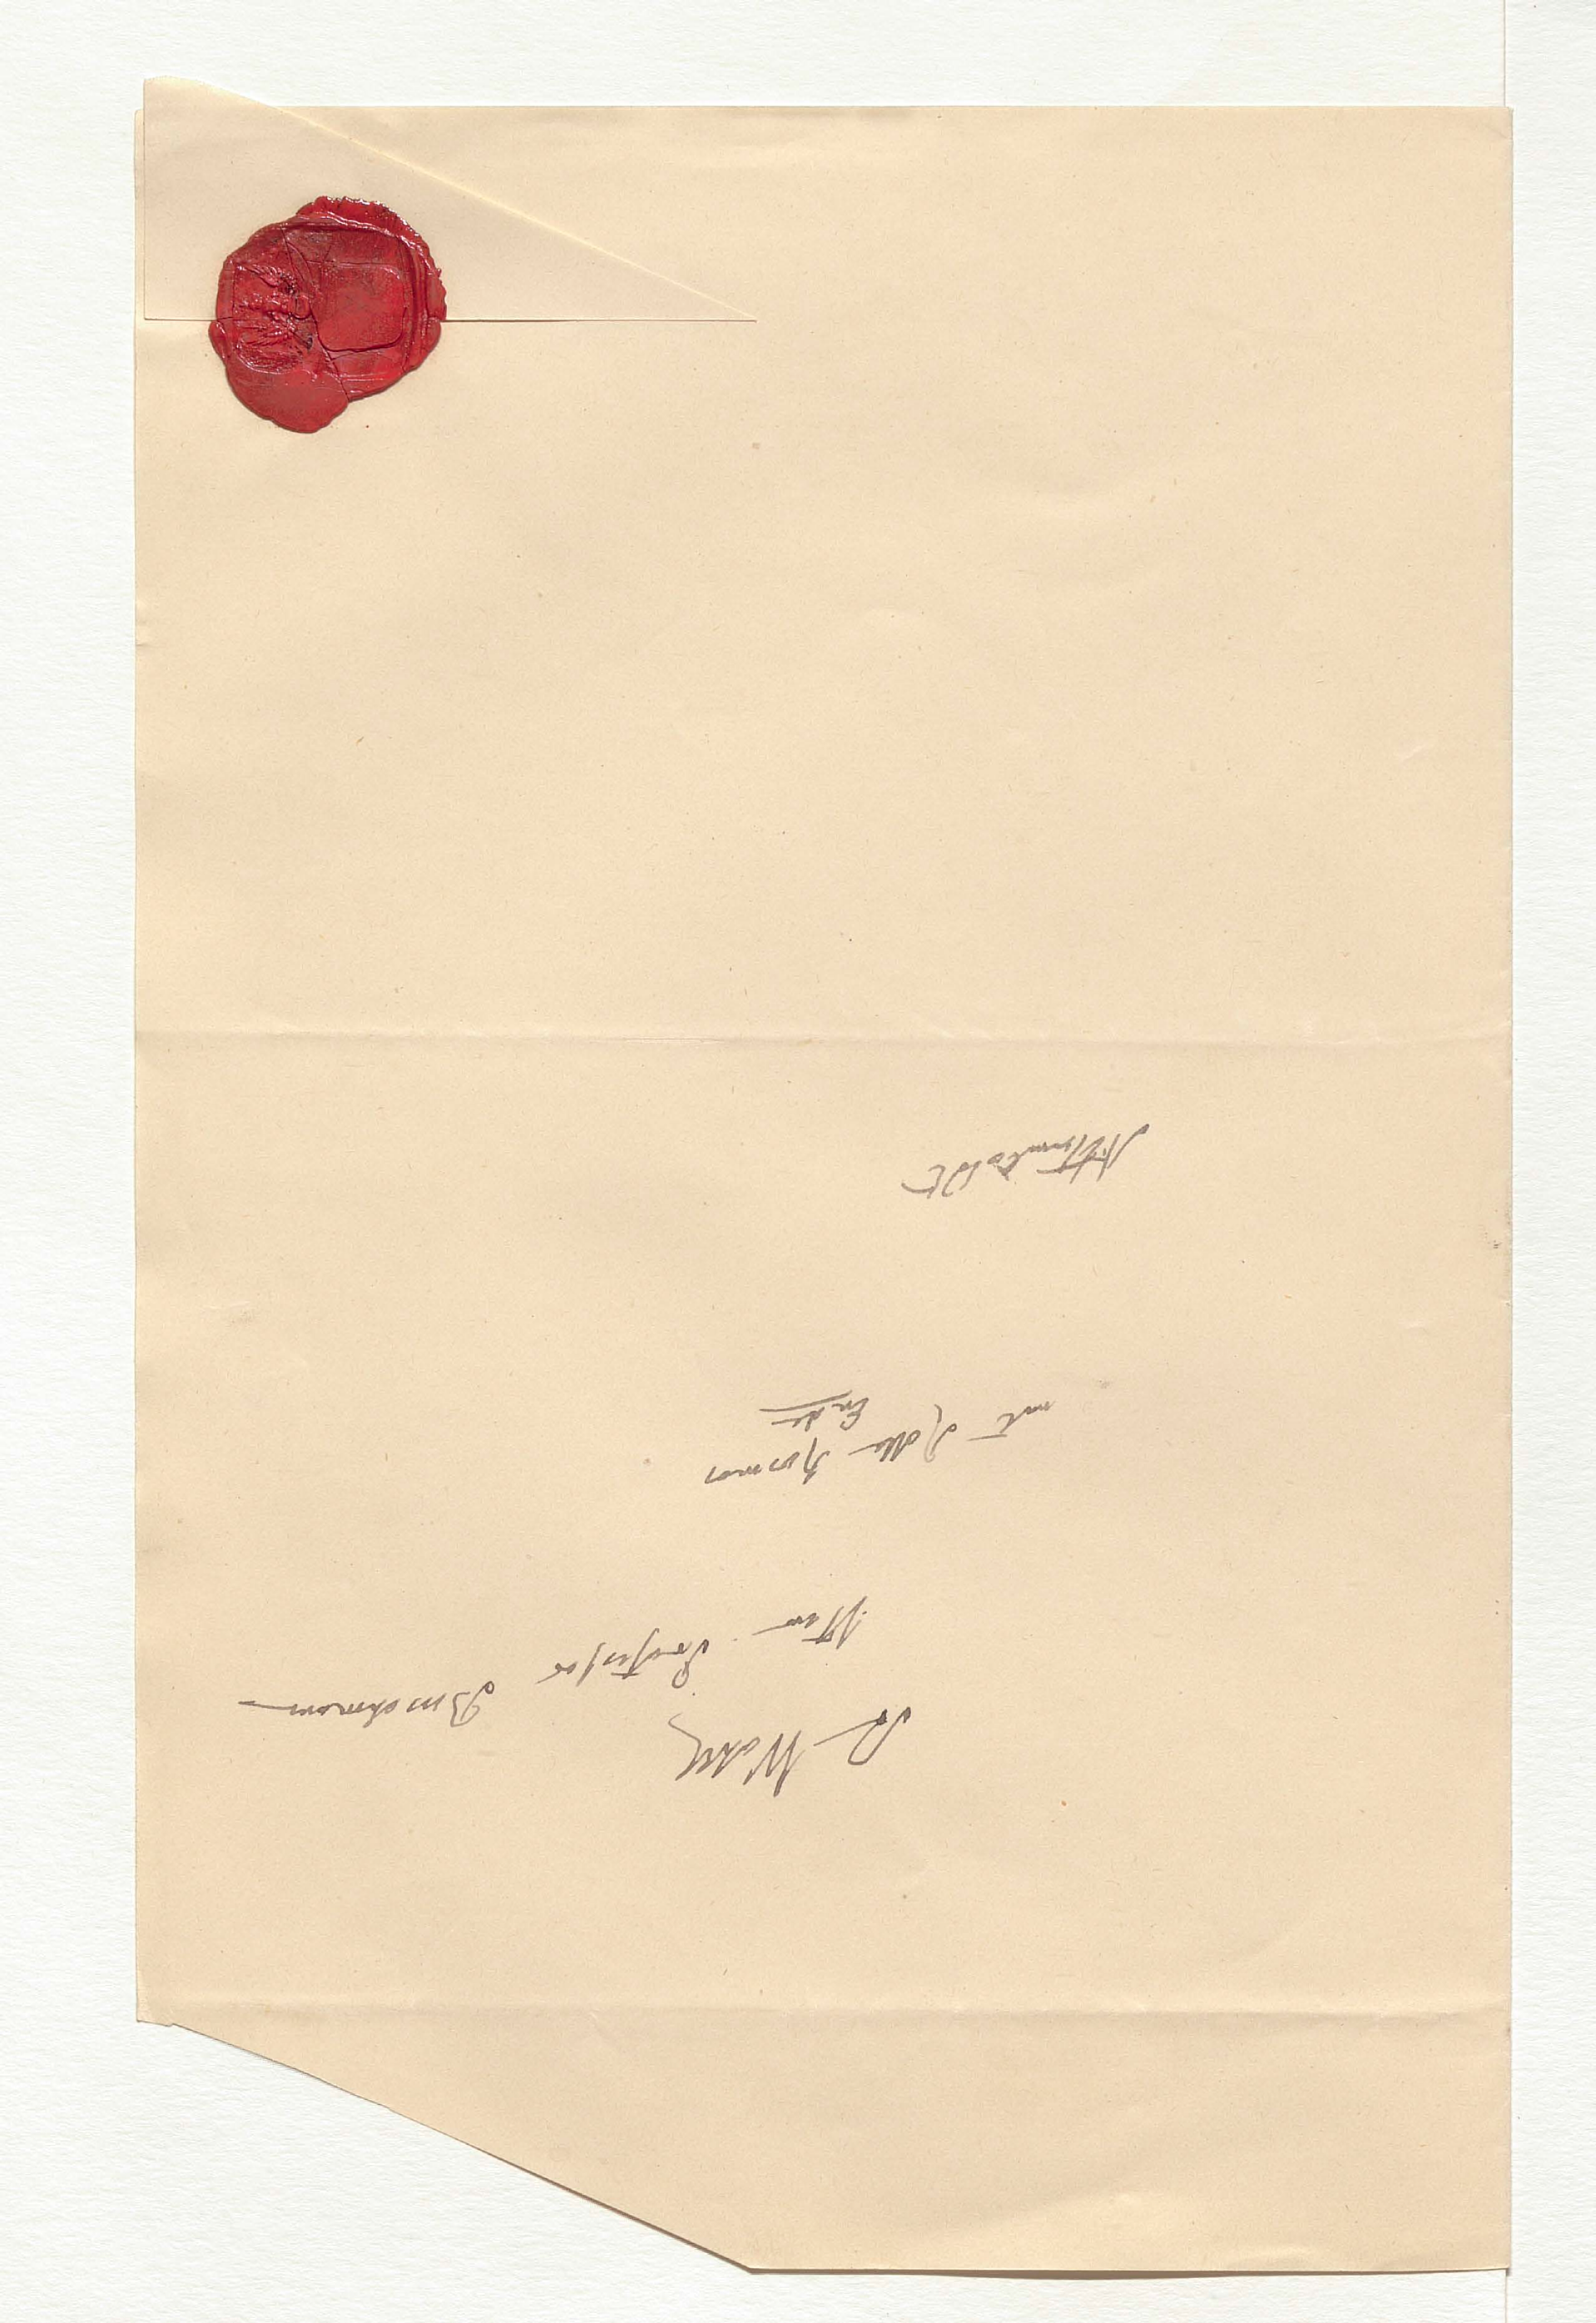 Sr Wohlg
Herrn Professor Buschmann
mit Kosmos
Ende
AHumboldt